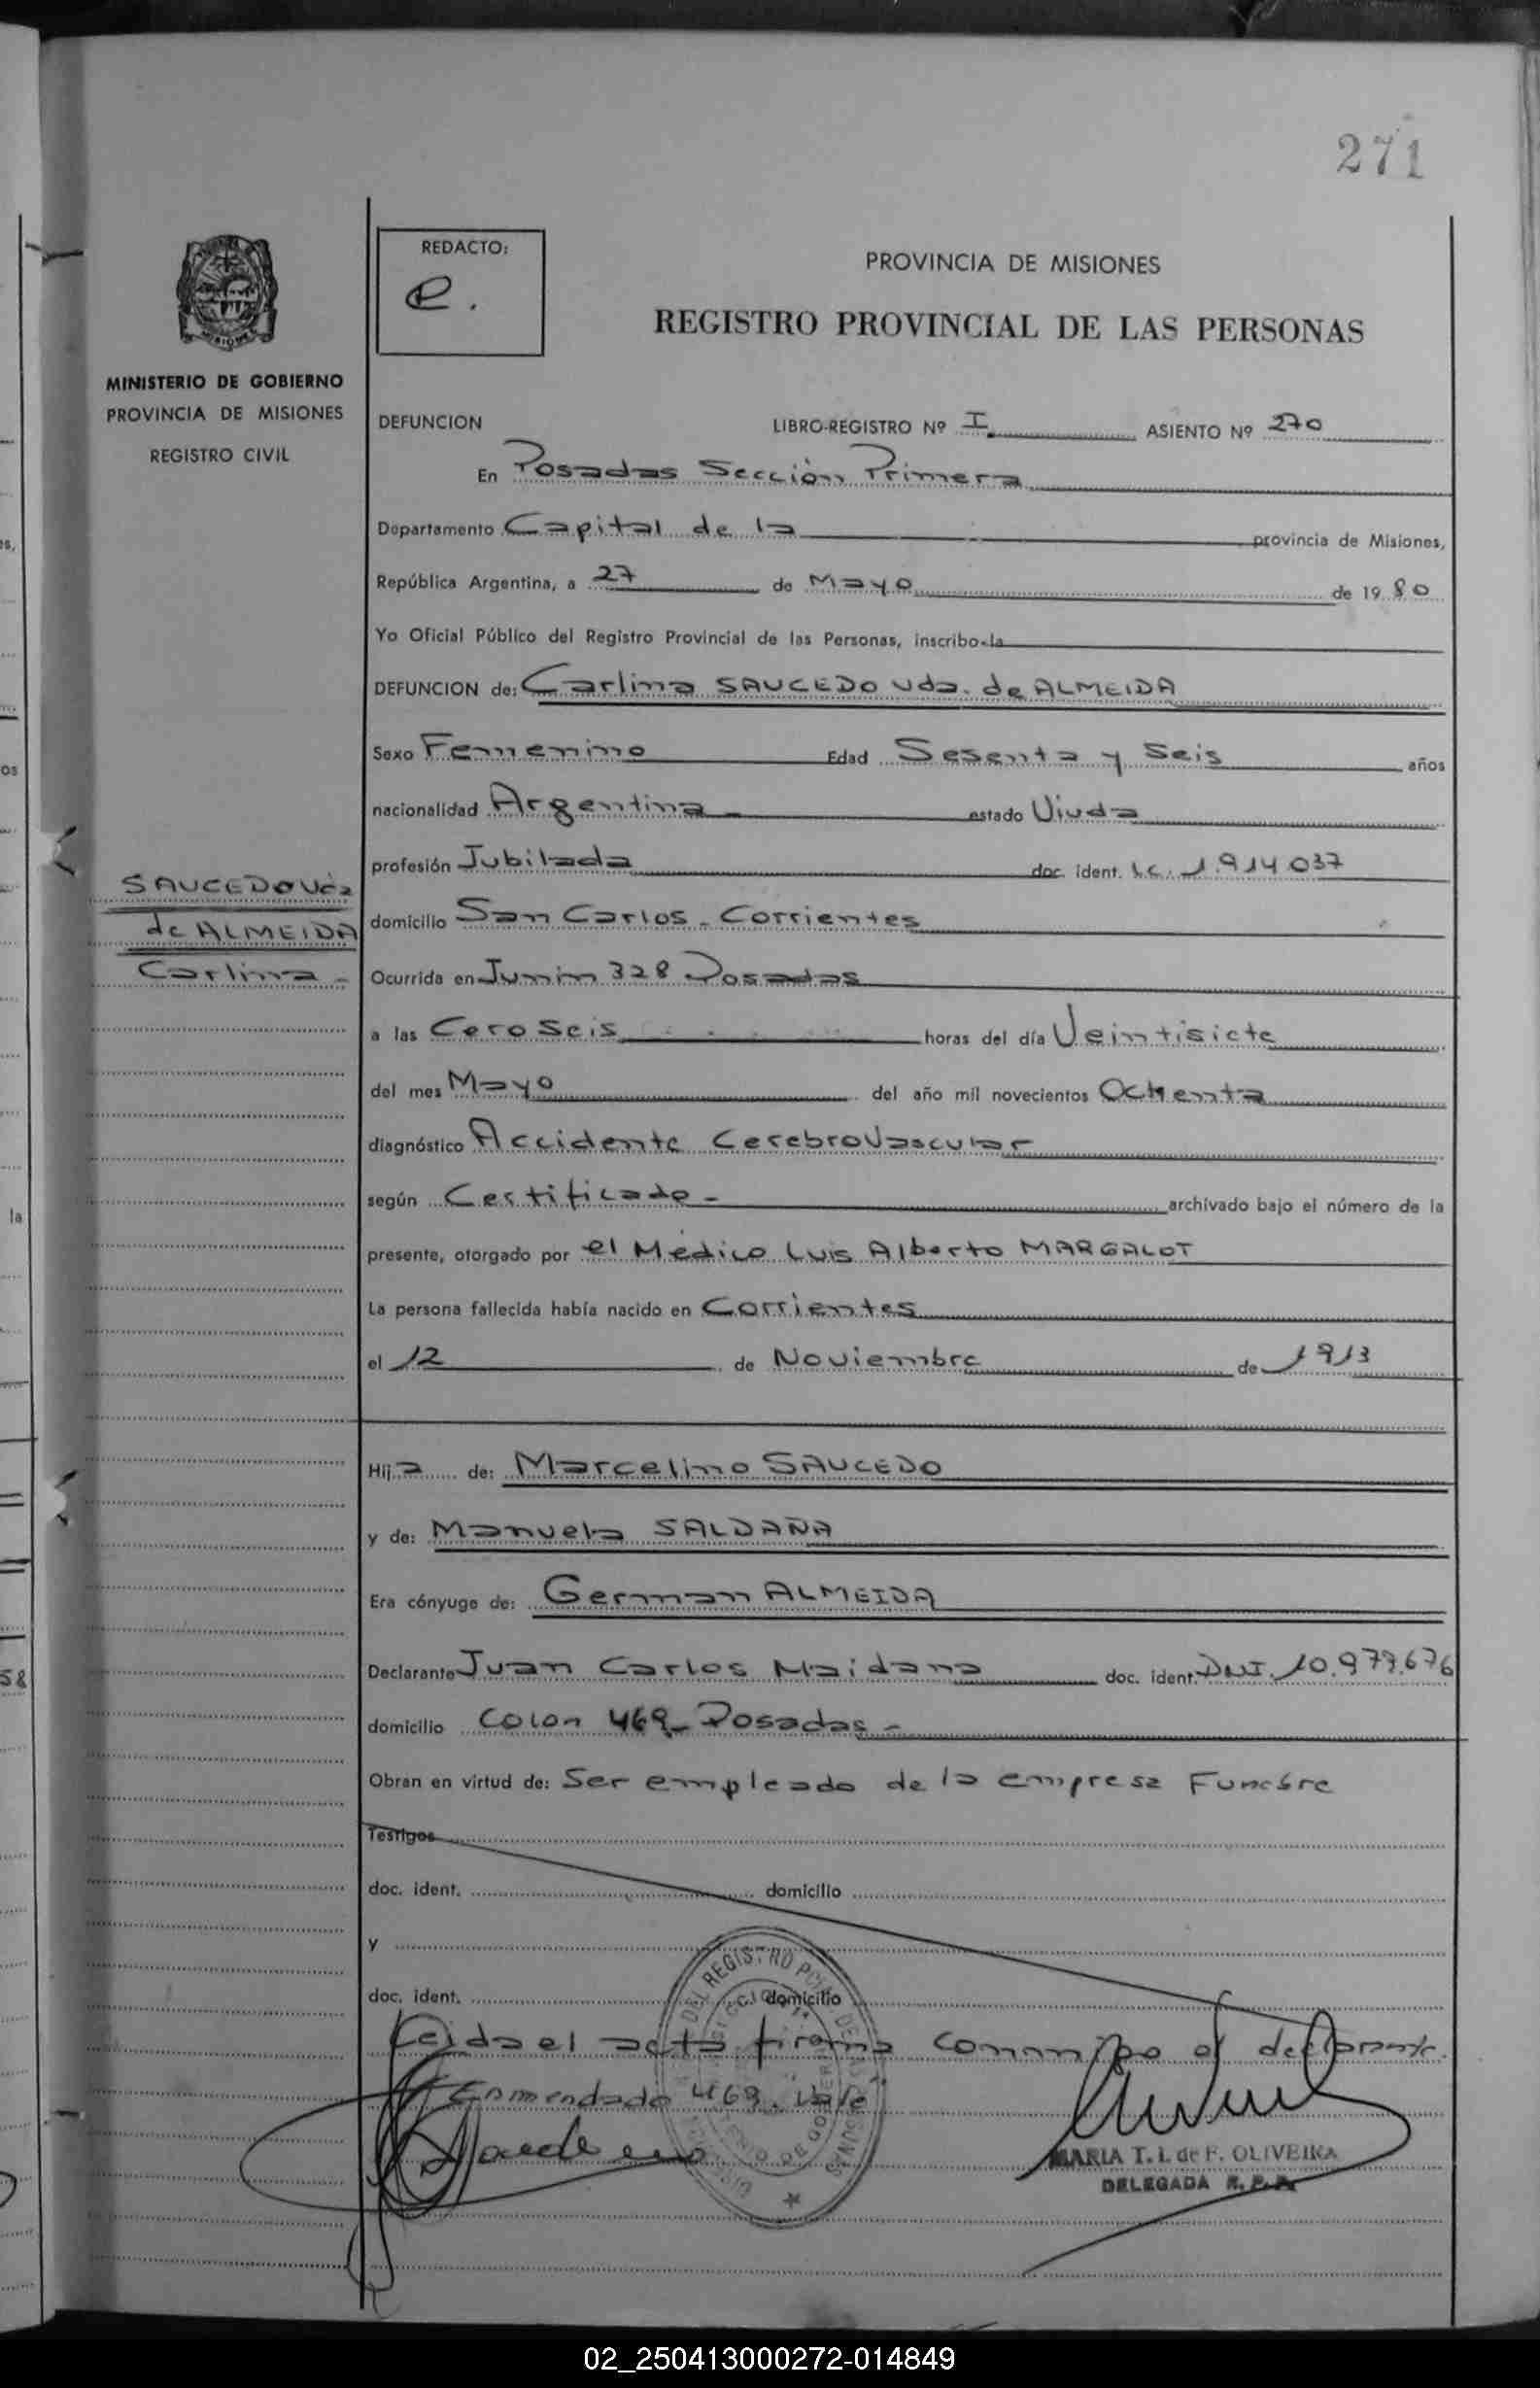 271
REDACTO:
e.
PROVINCIA DE MISIONES
REGISTRO PROVINCIAL DE LAS PERSONAS
MINISTERIO DE GOBIERNO
PROVINCIA DE MISIONES
REGISTRO CIVIL
DEFUNCION LIBRO-REGISTRO Nº I ASIENTO Nº 270
En Posadas Sección Primera
Departamento Capital de la provincia de Misiones,
República Argentina, a 27 de Mayo de 1980
Yo Oficial Público del Registro Provincial de las Personas, inscribo la
DEFUNCION de: Carlina SAUCEDO Vda. de ALMEIDA
Sexo Femenino Edad Sesenta y Seis años
nacionalidad Argentina - estado Viuda
profesión Jubilada doc. ident. L.C. 1.914037
SAUCEDO Vda
de ALMEIDA
Carlina -
domicilio San Carlos - Corrientes
Ocurrida en Junin 328 Posadas
a las Cero Seis horas del día Veintisiete
del mes Mayo del año mil novecientos Ochenta
diagnóstico Accidente Cerebro Vascular
según Certificado - archivado bajo el número de la
presente, otorgado por el Médico Luis Alberto MARGALOT
La persona fallecida había nacido en Corrientes
el 12 de Noviembre de 1913
Hija de: Marcelino SAUCEDO
y de: Manuela SALDAÑA
Era cónyuge de: German ALMEIDA
Declarante Juan Carlos Maidana doc. ident. DNI. 10.979.676
domicilio Colon 469 - Posadas -
Obran en virtud de: Ser empleado de la empresa Funebre
Testigos
doc. ident. domicilio
y
doc. ident. domicilio
Leida el acta firma conmigo el declarante.
Enmendado 469. Vale
MARIA T. I. de F. OLIVEIRA
DELEGADA R. P. P.
02_250413000272-014849